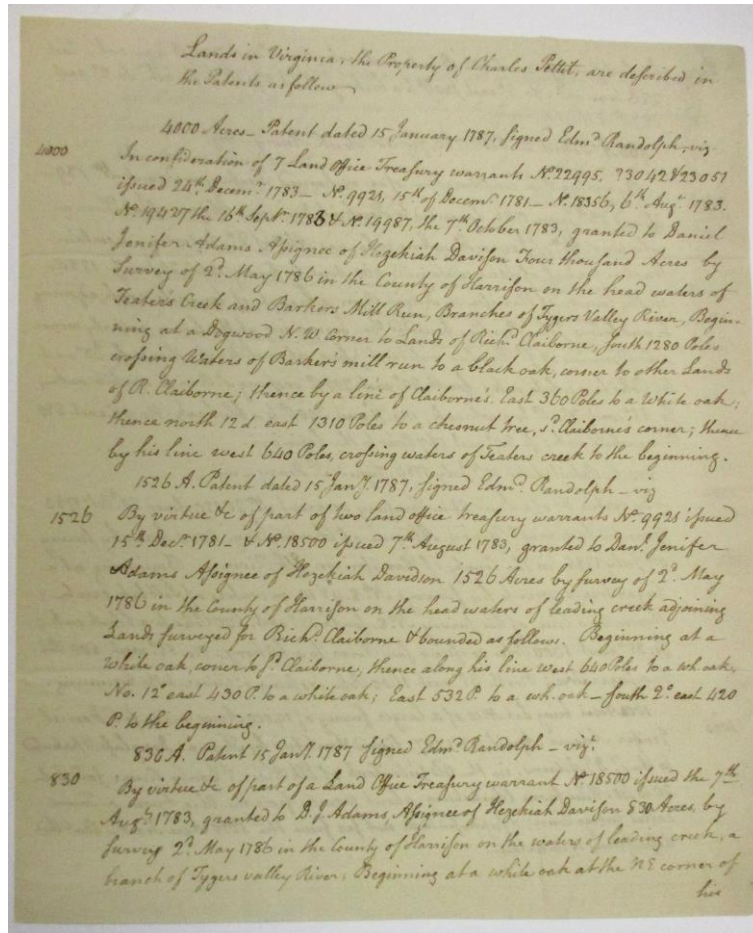 Lands in Virginia, the Property of Charles Pettit, are described in
the Patents as follow
4000 Acres - Patent dated 15 January 1787, signed Edmd Randolph, viz
4000 In consideration of 7 Land Office Treasury warrants No. 22995. 23042 & 23051
issued 24th Decemr 1783 - No. 9921, 15th of Decemr 1781 - No. 18356, 6th Augt 1783.
No. 19427 the 16th Septr 1783 & No. 19987, the 7th October 1783, granted to Daniel
Jenifer Adams Assignee of Hezekiah Davison Four thousand Acres by
Survey of 2d May 1786 in the County of Harrison on the head waters of
Teater's Creek and Barkers Mill Run, Branches of Tygers Valley River, Begin-
ning at a Dogwood N.W Corner to Lands of Richd Claiborne, South 1280 Poles
crossing Waters of Barker's mill run to a black oak, corner to other Lands
of R. Claiborne; thence by a line of Claiborne's East 360 Poles to a White oak;
thence north 12 d. east 1310 Poles to a chesnut tree, sd Claiborne's corner; thence
by his line west 640 Poles, crossing waters of Teaters creek to the beginning.
1526 A. Patent dated 15 Jany 1787, signed Edmd Randolph - viz
1526 By virtue &c of part of two land office treasury warrants No. 9921 issued
15th Decr 1781 - & No. 18500 issued 7th August 1783, granted to Danl Jenifer
Adams Assignee of Hezekiah Davidson 1526 Acres by survey of 2d May
1786 in the County of Harrison on the head waters of leading creek adjoining
Lands surveyed for Richd Claiborne & bounded as follows. Beginning at a
white oak, corner to sd Claiborne, thence along his line west 640 Poles to a wh oak,
No. 12° east 430 P. to a white oak; East 532 P. to a wh. oak - South 2° east 420
P. to the beginning.
836 A. Patent 15 Jany 1787 signed Edmd Randolph - vizt
830 By virtue &c of part of a Land Office Treasury warrant No 18500 issued the 7th
Augt 1783, granted to D. J. Adams, Assignee of Hezekiah Davison 830 Acres, by
survey 2d May 1786 in the County of Harrison on the waters of leading creek, a
branch of Tygers valley River; Beginning at a white oak at the NE corner of